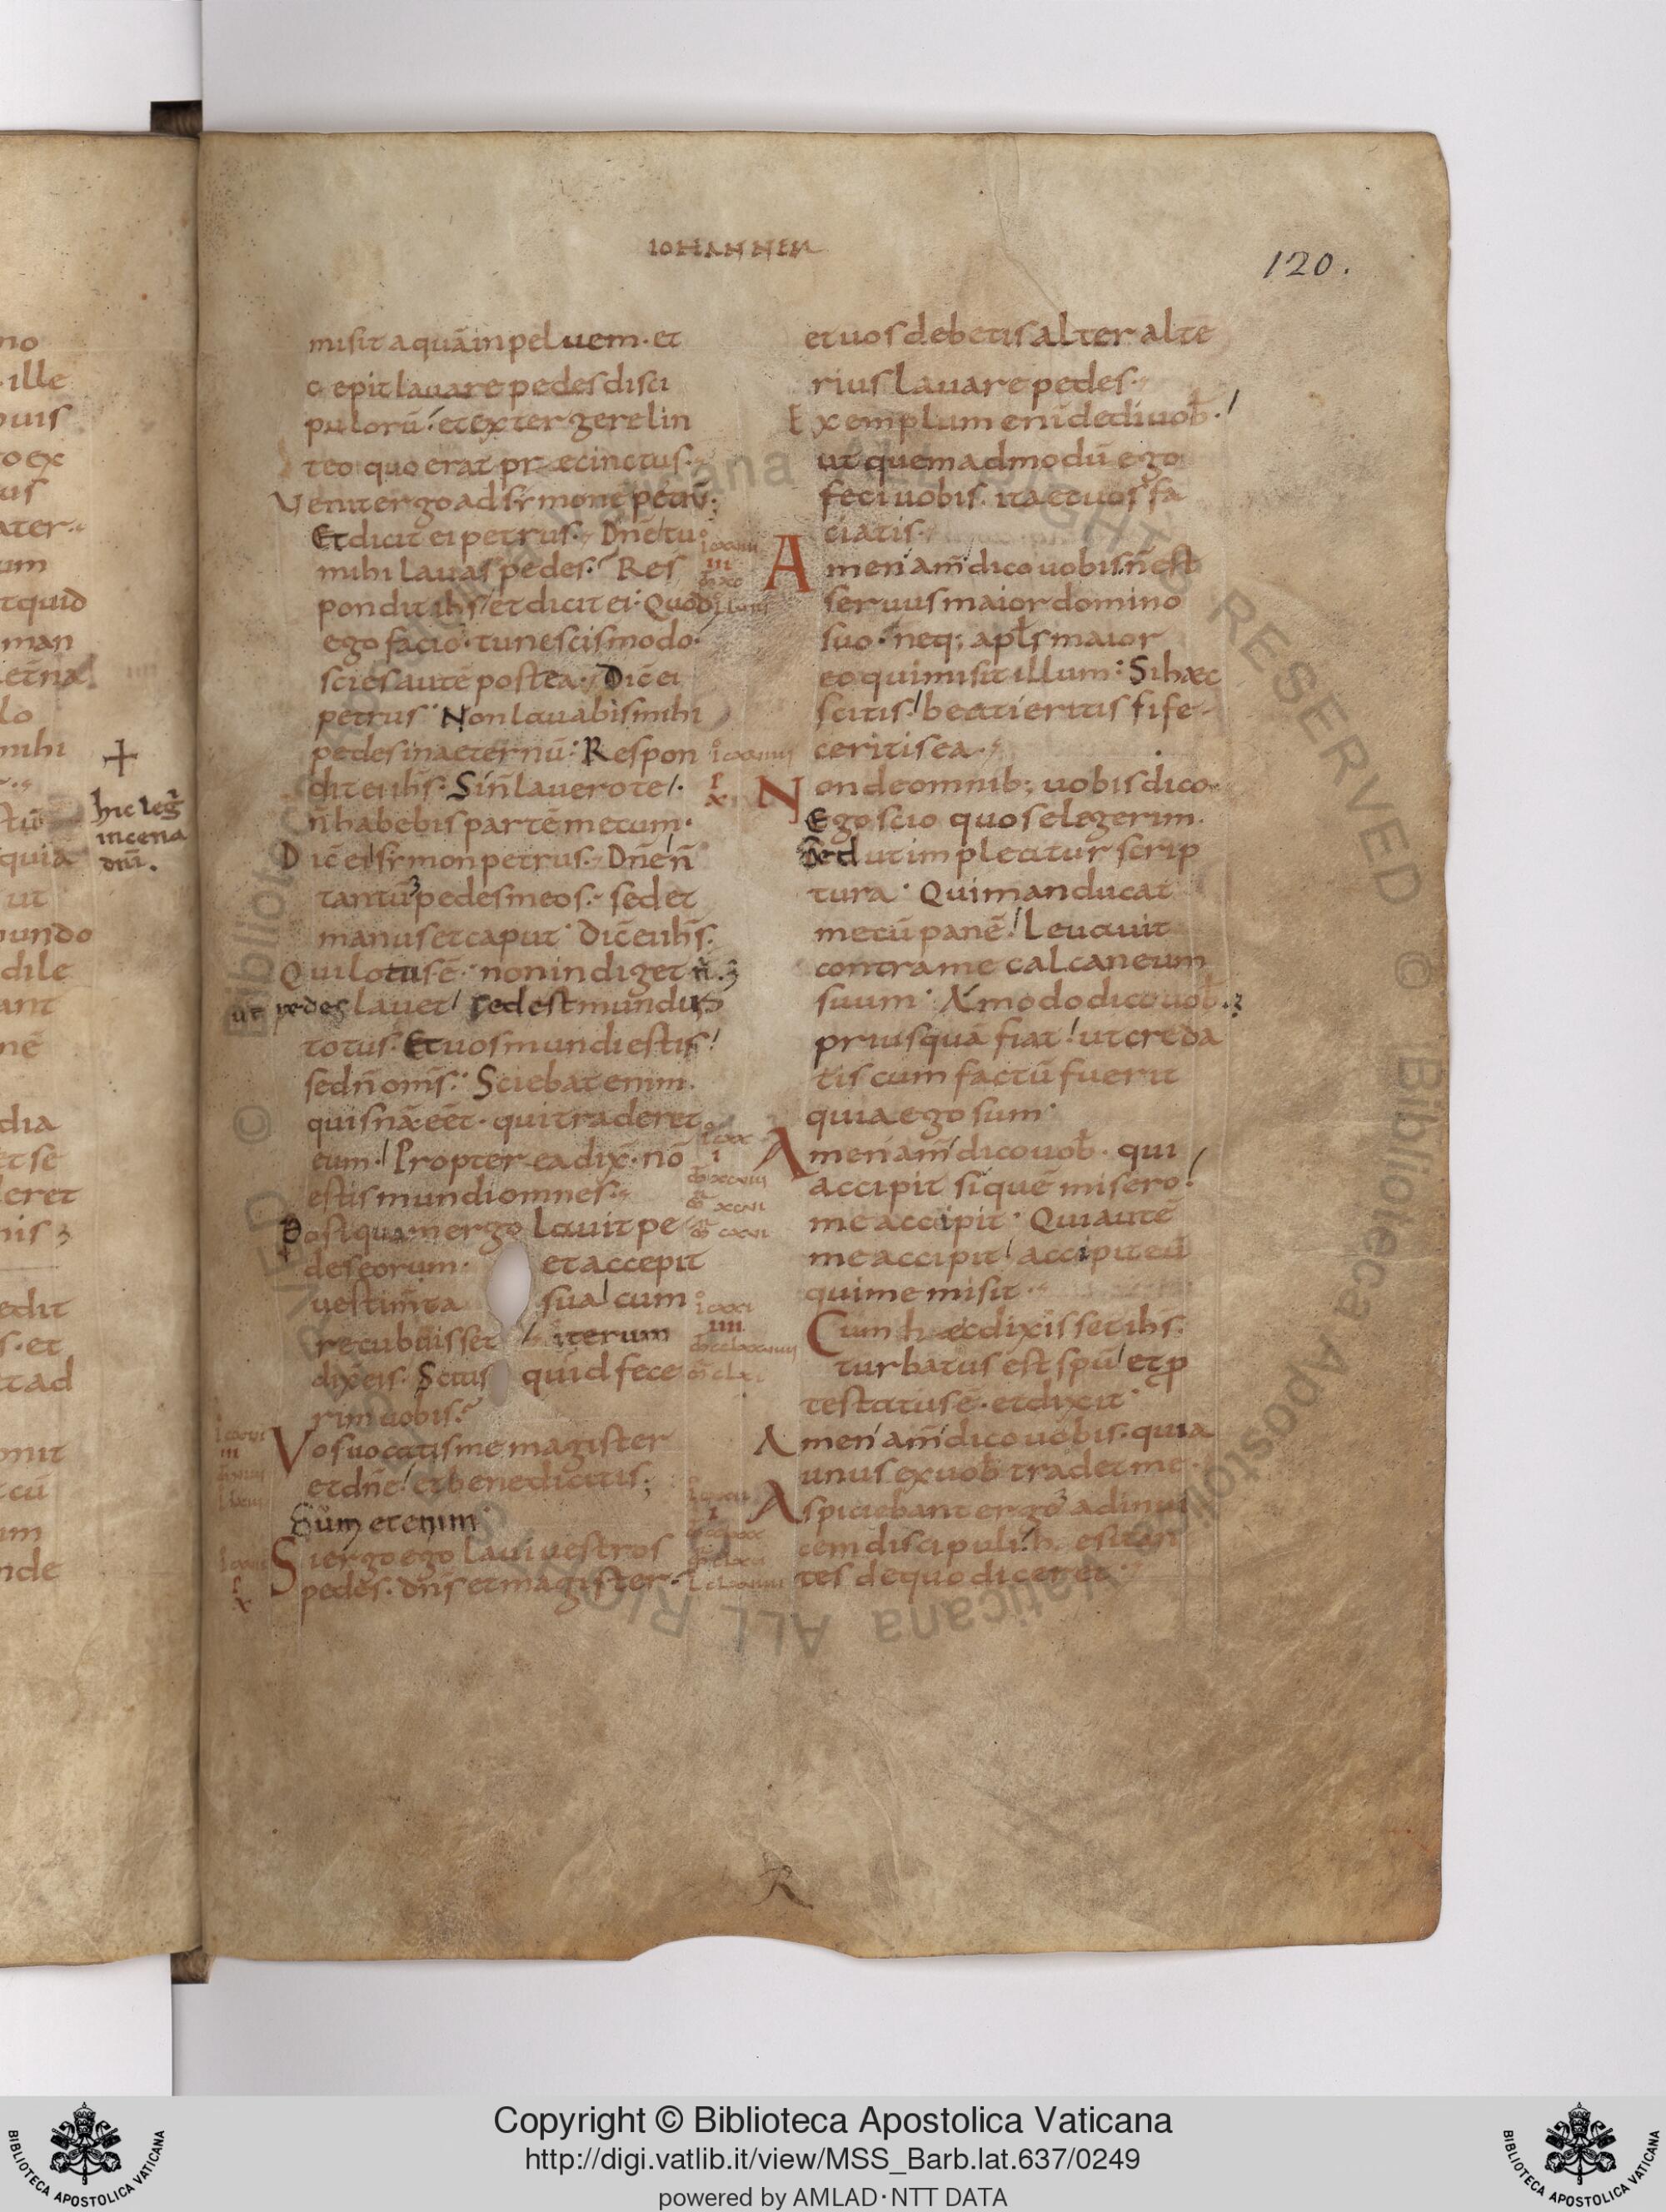 IOHANNEM
120.
misit aquā in peluem · et
cepit lauare pedes disci
pulorū · et extergere lin
teo quo erat præcinctus ·
Venit ergo ad symonē petrū ·
Et dicit ei petrus · Dnē tu
mihi lauas pedes · Res
pondit ihs et dicit ei · Quod
ego facio · tu nescis modo ·
scies autē postea · Dic̄ ei
petrus · Non lauabis mihi
pedes in aeternū · Respon
dit ei ihs · Si n̄ lauero te ·
n̄ habebis partē mecum ·
Dic̄ ei symon petrus · Dnē n̄
tantū pedes meos · sed et
manus et caput · Dic̄ ei ihs ·
Qui lotus ē · non indiget n̄ ·
ut pedes lauet / sed est mundus
totus · Et uos mundi estis /
sed n̄ om̄s · Sciebat enim ·
quisnā eēt · qui traderet
eum · Propterea dix̄ · nō
estis mundi omnes ·
Postquam ergo lauit pe
des eorum · et accepit
uestim̄ta sua / cum
recubuisset / iterum
dix̄ eis · Scitis quid fece
rim uobis ·
Vos uocatis me magister
et dn̄e / et bene dicitis ;
Sūm etenim
Si ergo ego laui uestros
pedes · dn̄s et magister ·
et uos debetis alter alte
rius lauare pedes ·
Exemplum enī dedi uob̄ ·
ut quemadmodū ego
feci uobis · ita et uos fa
ciatis ·
Amen am̄ dico uobis · n̄ est
seruus maior domino
suo · neq; apl̄s maior
eo qui misit illum · Si hæc
scitis / beati eritis si fe
ceritis ea ·
Non de omnib; uobis dico ·
Ego scio quos elegerim ·
Sed ut impleatur scrip
tura · Qui manducat
mecū panē / Leuauit
contra me calcaneum
suum · A modo dico uob̄ ·
priusquā fiat / ut creda
tis cum factū fuerit
quia ego sum ·
Amen am̄ dico uob̄ · qui
accipit si quē misero /
me accipit · Qui autē
me accipit / accipit eū
qui me misit ·
Cum hæc dixisset ihs ·
turbatus est spū / et p
testatus ē · et dixit ·
Amen am̄ dico uobis · quia
unus ex uob̄ tradet me ·
Aspiciebant ergo ad inui
cem discipuli · hesitan
tes de quo diceret ·
+
hic leg̃
in cena
dn̄i ·
Copyright © Biblioteca Apostolica Vaticana
http://digi.vatlib.it/view/MSS_Barb.lat.637/0249
powered by AMLAD·NTT DATA
BIBLIOTECA APOSTOLICA VATICANA
BIBLIOTECA APOSTOLICA VATICANA